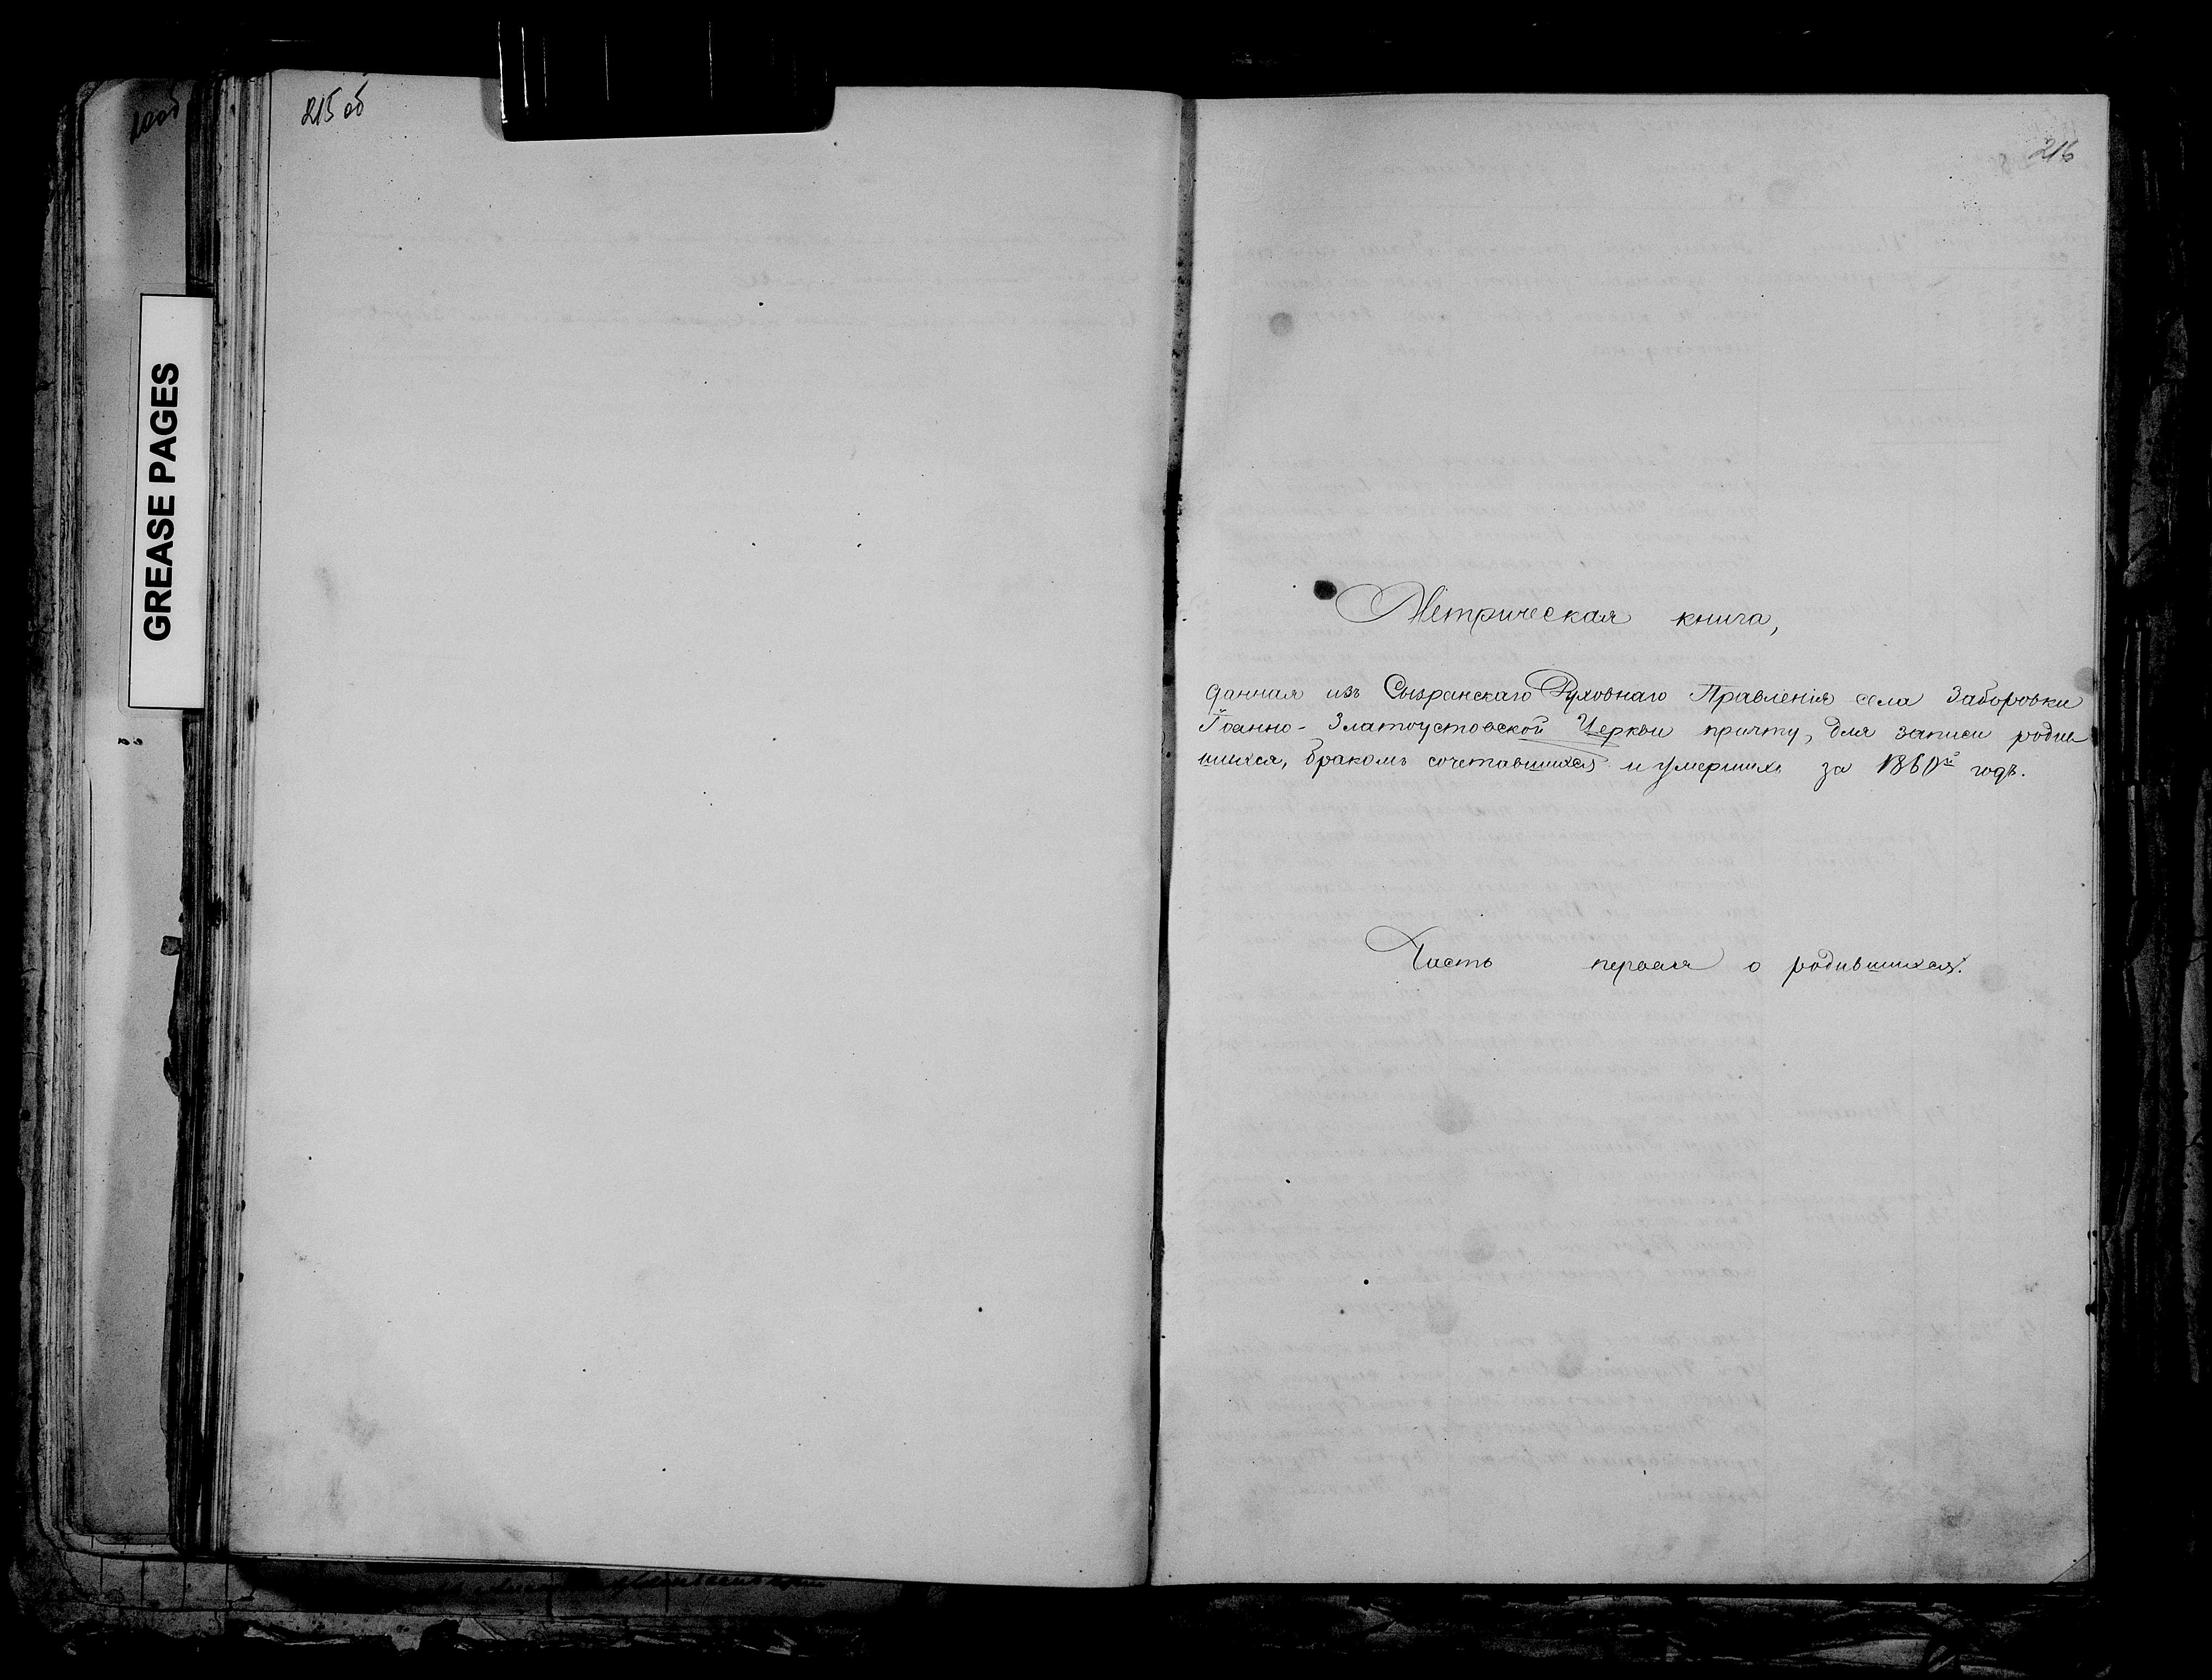 215 об
216
GREASE PAGES
Метрическая книга,
данная изъ Сызранскаго Духовнаго Правленія села Заборовки
Іоанно-Златоустовской Церкви причту, для записи родив
шихся, бракомъ сочетавшихся и умершихъ за 1860й годъ.
Часть первая о родившихся.